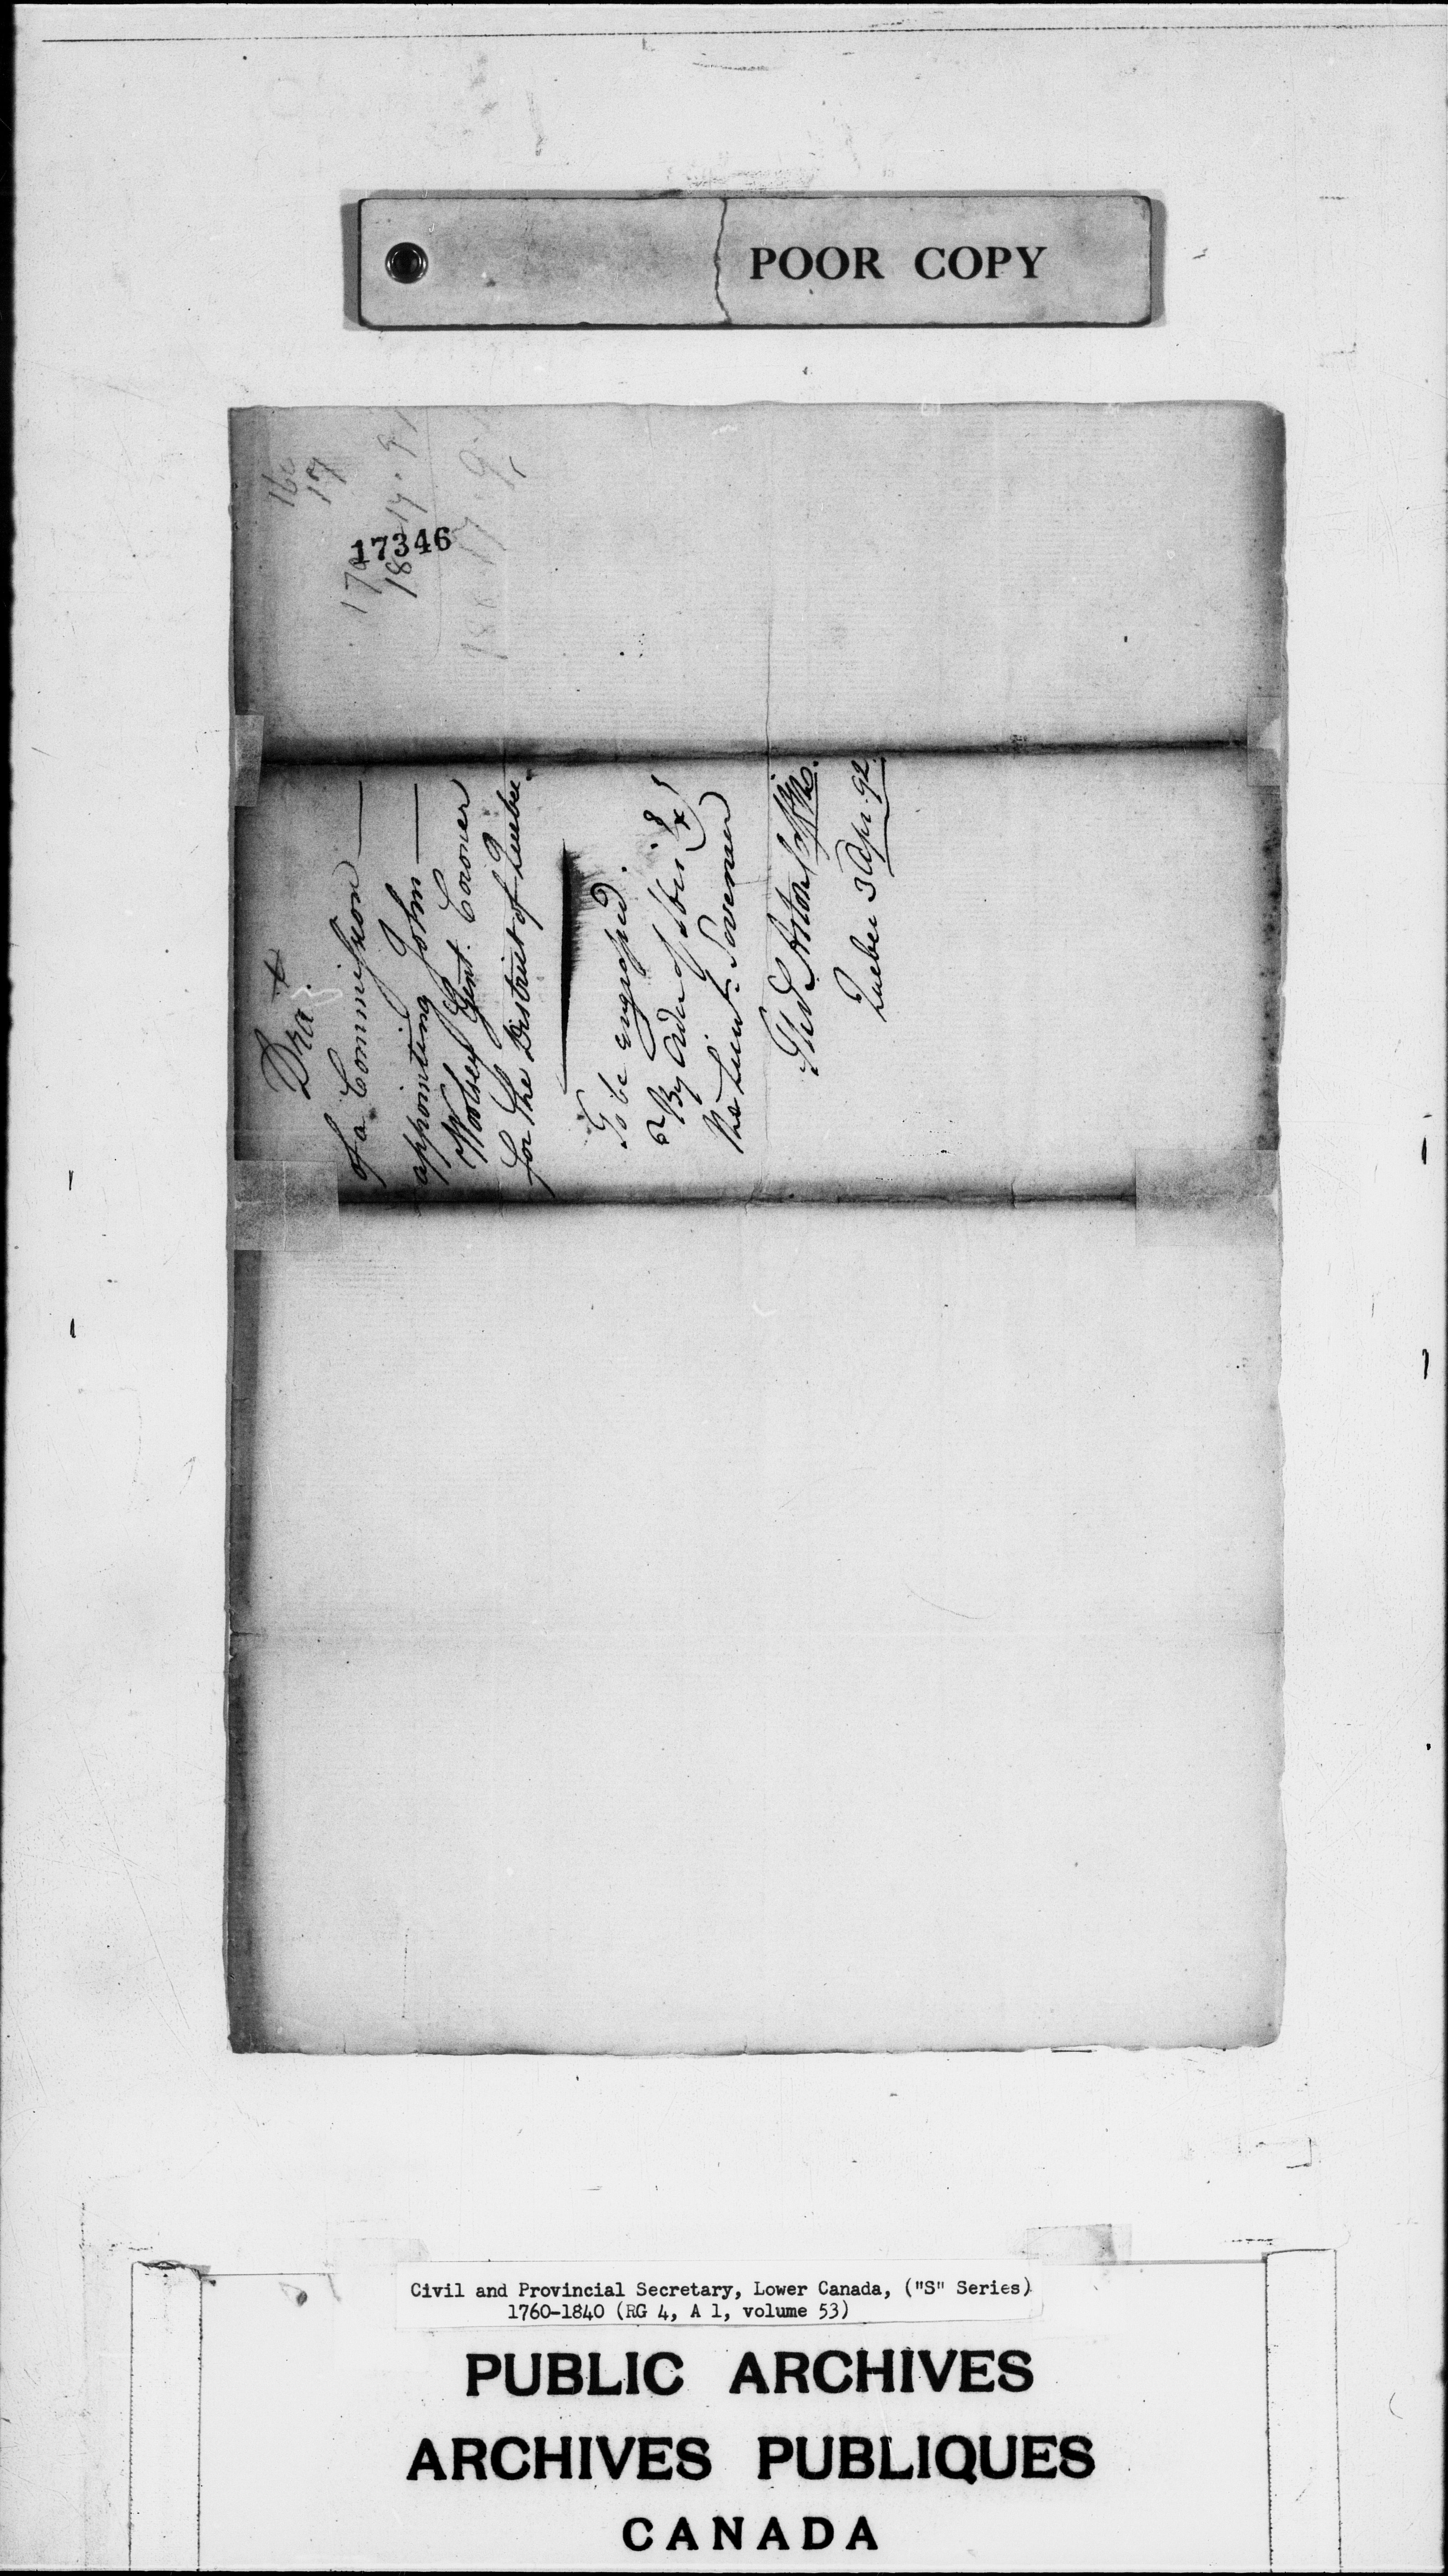 POOR COPY
17346
Dra.t
of a Commission
appointing John
Woolsey Gent. Coroner
for the District of Quebec
To be engrossed.
By Order of His Ex.
the Lieut. Governor
Quebec 3 Apr. 92
Civil and Provincial Secretary, Lower Canada, ("S" Series)
1760-1840 (RG 4, A 1, volume 53)
PUBLIC ARCHIVES
ARCHIVES PUBLIQUES
CANADA